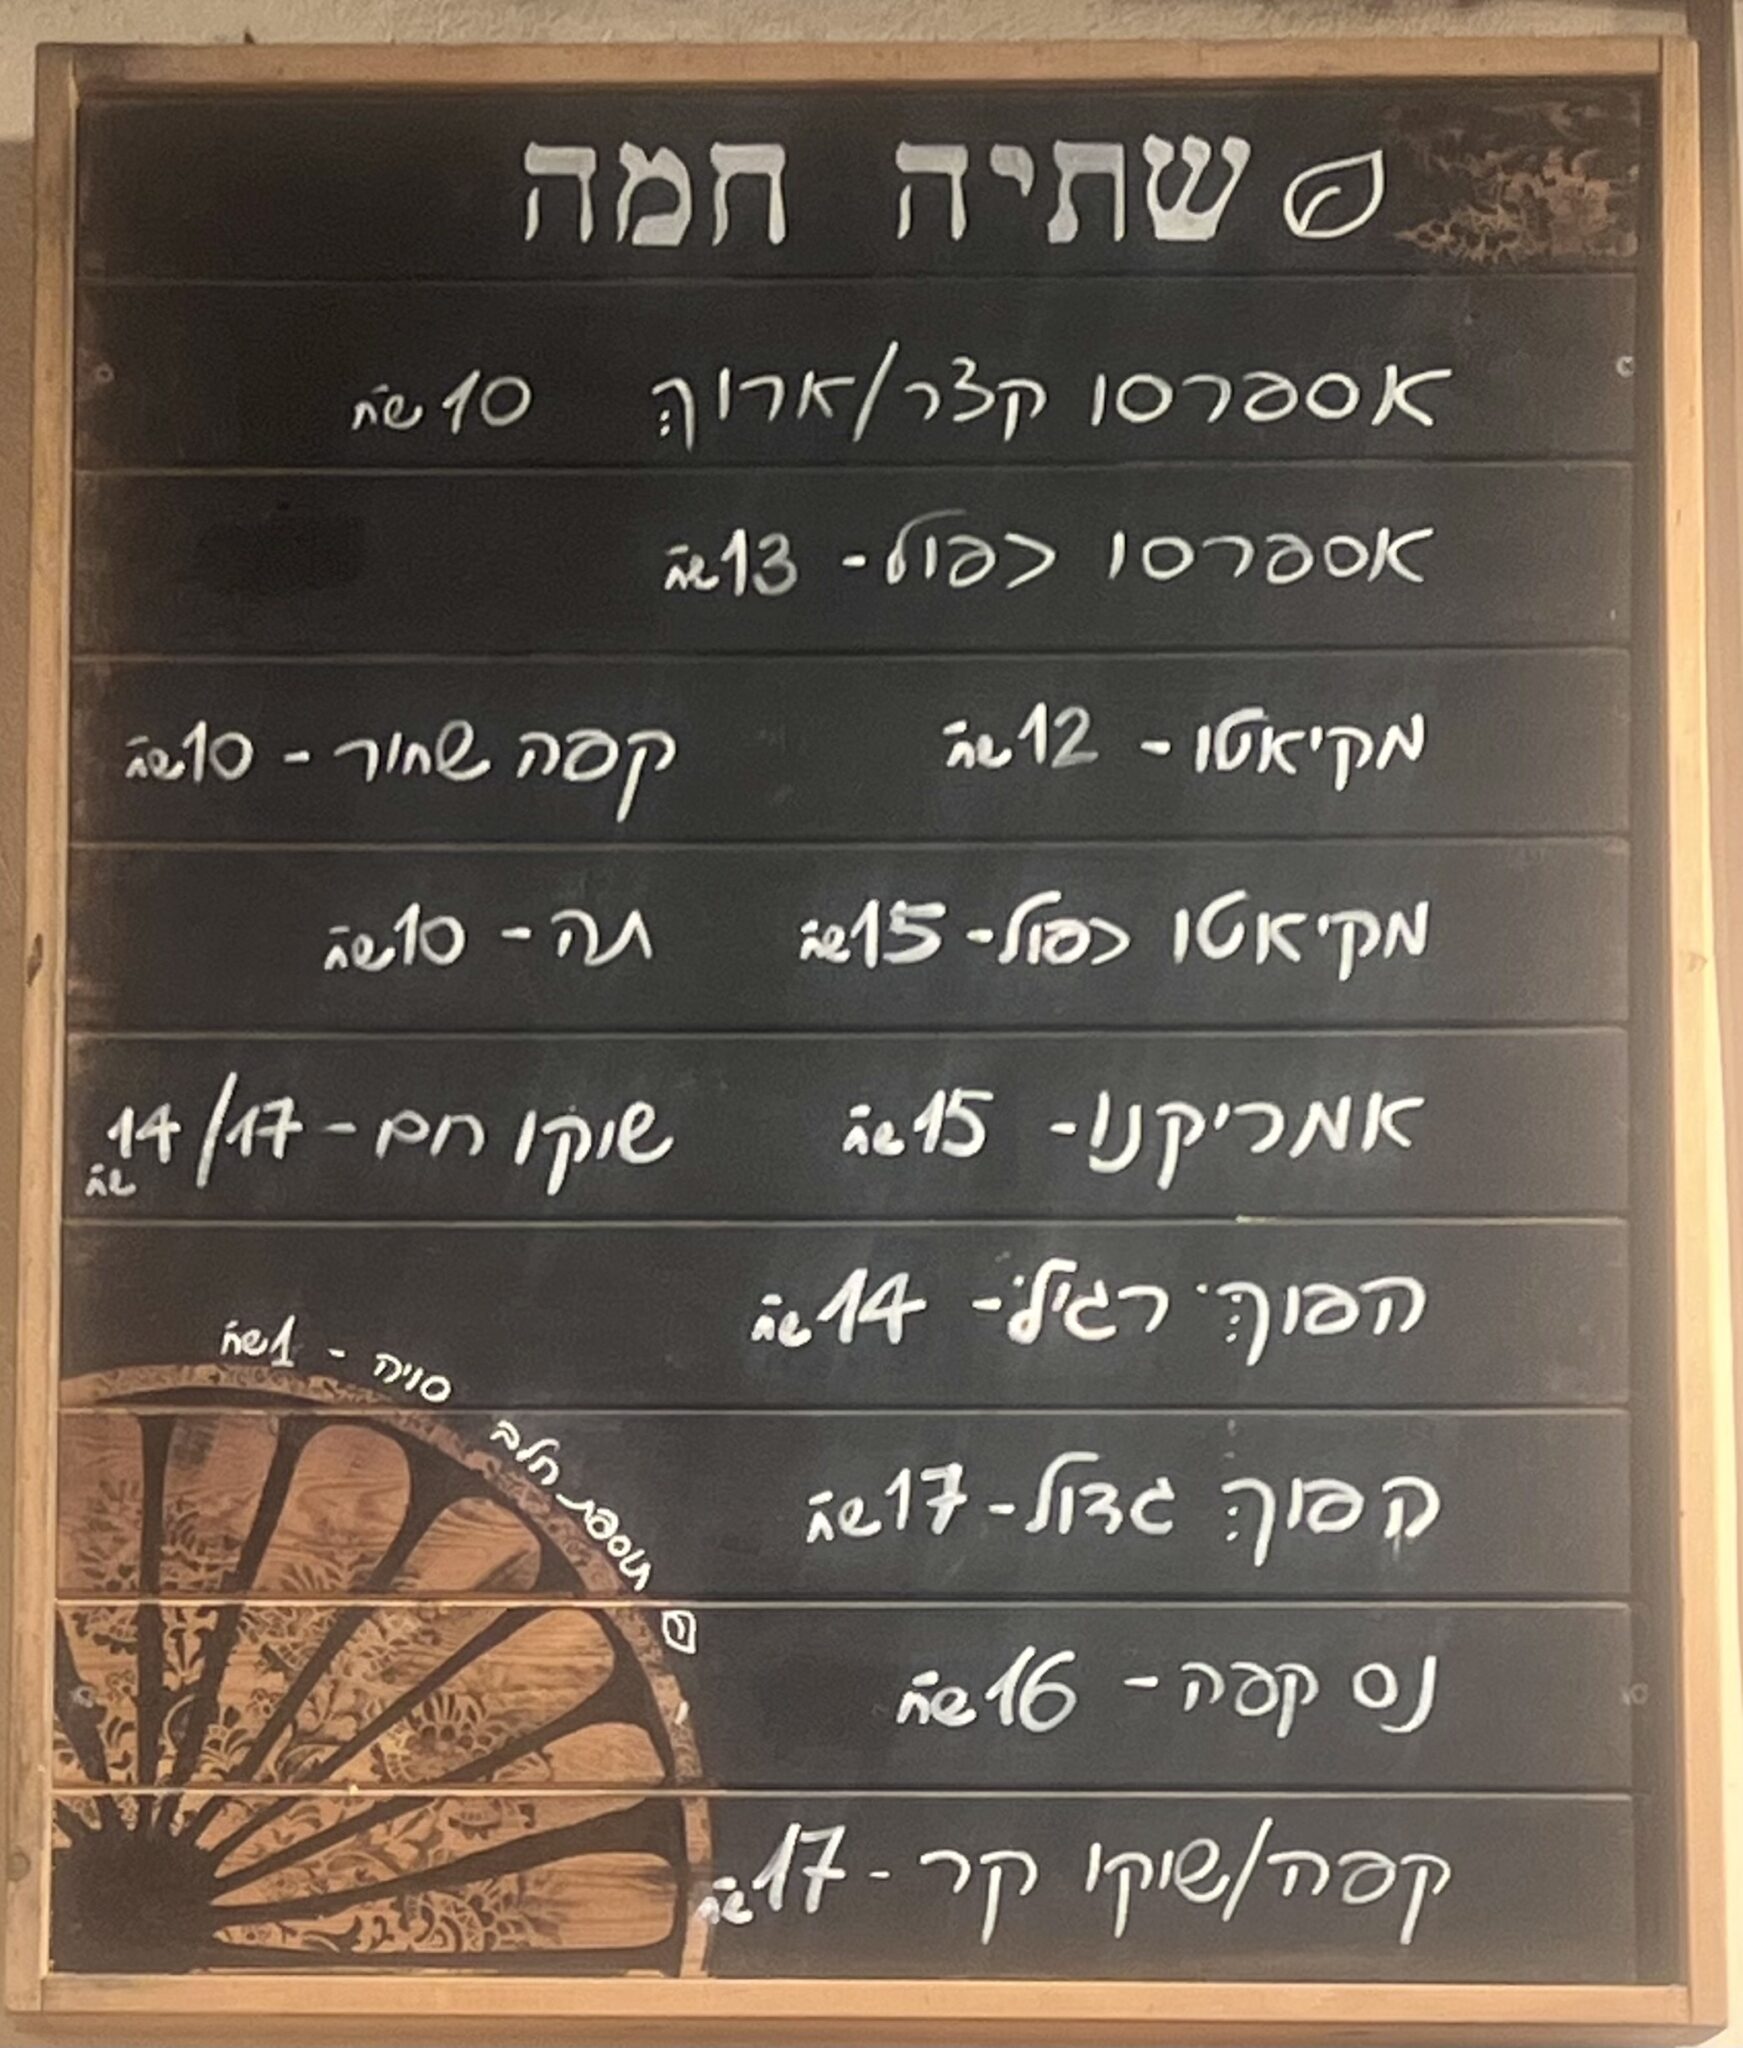 שתיה חמה
אספרסו קצר/ארוך 10 שח
אספרסו כפול - 13 שח
מקיאטו - 12 שח
קפה שחור - 10 שח
מקיאטו כפול - 15 שח
תה - 10 שח
אמריקנו - 15 שח
שוקו חם - 14/17 שח
הפוך רגיל - 14 שח
הפוך גדול - 17 שח
נס קפה - 16 שח
קפה/שוקו קר - 17 שח
תוספת חלב סויה - 1 שח